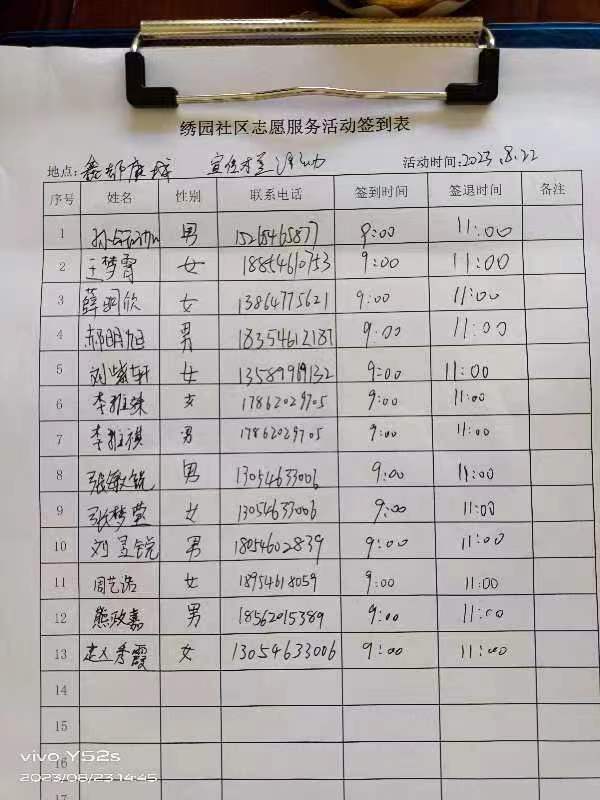 绣园社区志愿服务活动签到表
地点: 宣传 活动时间:2023.8.22
序号 姓名 性别 联系电话 签到时间 签退时间 备注
1 男 15265465877 9:00 11:00
2 王梦霄 女 18854610753 9:00 11:00
3 薛明欣 女 13864775621 9:00 11:00
4 郝明旭 男 18354612187 9:00 11:00
5 刘紫轩 女 13589969132 9:00 11:00
6 李雅姝 女 17862029705 9:00 11:00
7 李雅祺 男 17862029705 9:00 11:00
8 张敏锐 男 13054633006 9:00 11:00
9 张梦莹 女 13054633006 9:00 11:00
10 刘 锐 男 18054602839 9:00 11:00
11 周艺诺 女 18954618059 9:00 11:00
12 熊政嘉 男 18562015389 9:00 11:00
13 赵秀霞 女 13054633006 9:00 11:00
14
15
16
17
vivo Y52s
2023/08/23 14:45